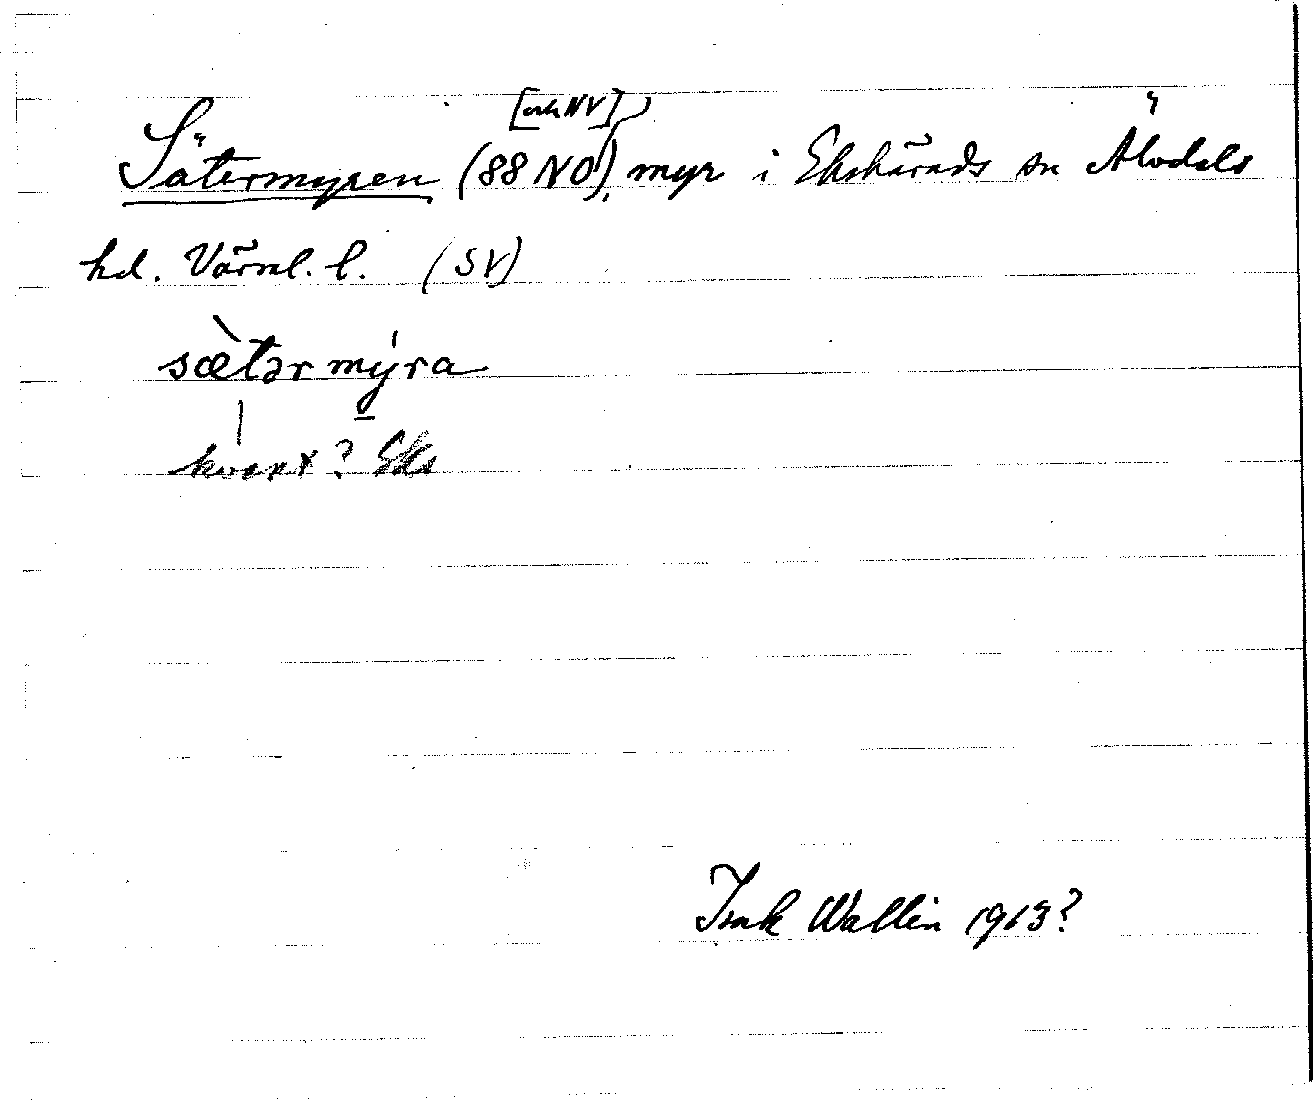 [och NV]
Sätermyren (88 NO), myr i Ekshärads sn Älvdals
hd. Värml. l. (SV)
sæ̀tər mýra
kvant? Eks
Isak Wallin 1913?